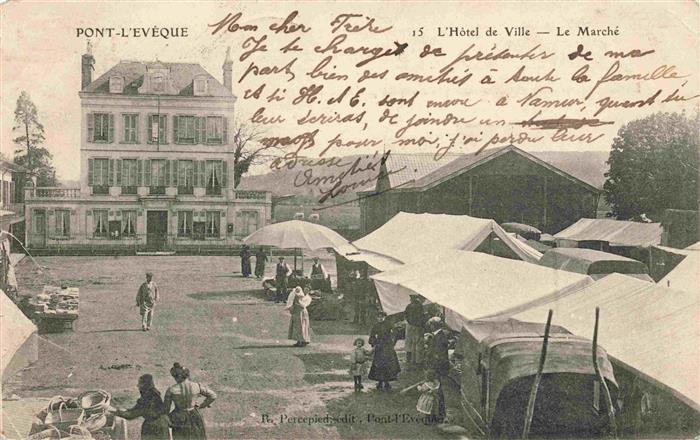 PONT-L'EVÊQUE
15 L'Hôtel de Ville — Le Marché
Mon cher Frère
Je te charge de présenter de ma
part bien des amitiés à toute la famille
et si H. A E. sont encore à Namur, quand tu
leur seriras, de joindre un
mots pour moi, j'ai perdu leur
adresse Amitiés
Louis
R. Percepied, édit, Pont-l'Evêque